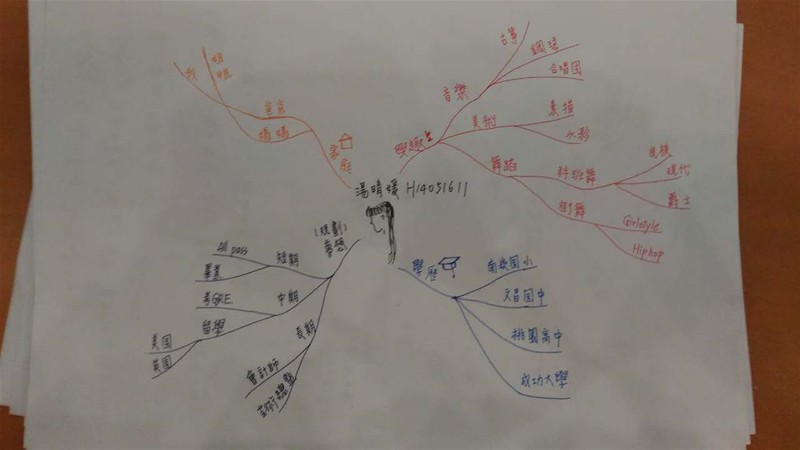 湯晴媛 H14051611
家庭
爸爸
媽媽
姐姐
我
興趣
音樂
古箏
鋼琴
合唱团
美術
素描
水彩
舞蹈
科班舞
民族
現代
爵士
街舞
Girlstyle
Hiphop
學歷
南崁国小
文昌国中
桃園高中
成功大學
(規劃)
夢想
短期
All pass
畢業
中期
考GRE
留學
美国
英国
長期
會計師
藝術總監